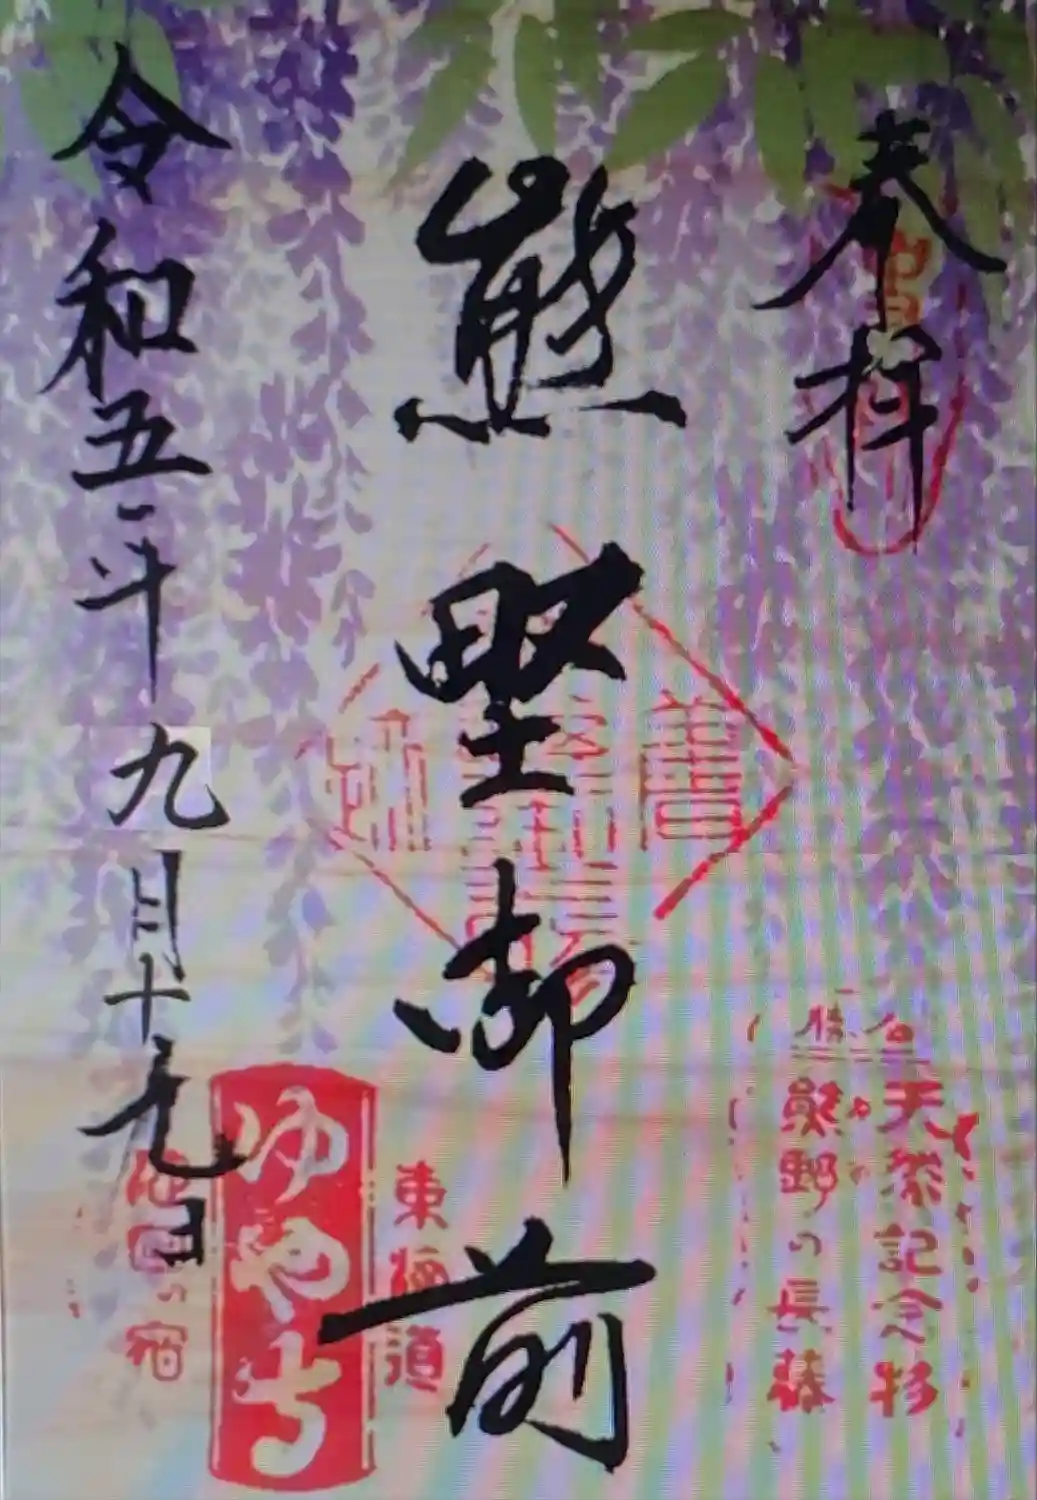 奉拝
熊野御前
令和五年九月十九日
名勝
天然記念物
熊野の長藤
東海道
ゆや
池田の宿